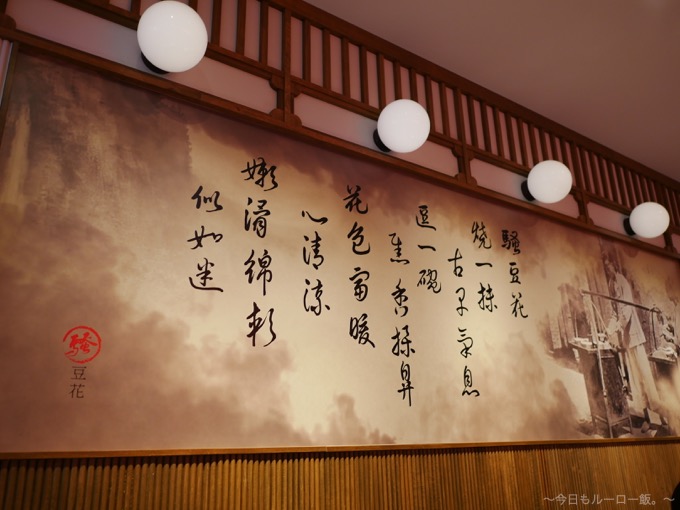 騷豆花
燒一抹
古早氣息
逗一碗
焦香揉昇
花色富暖
心清涼
嫩滑綿軟
似如迷
騷
豆花
〜今日もルーロー飯。〜